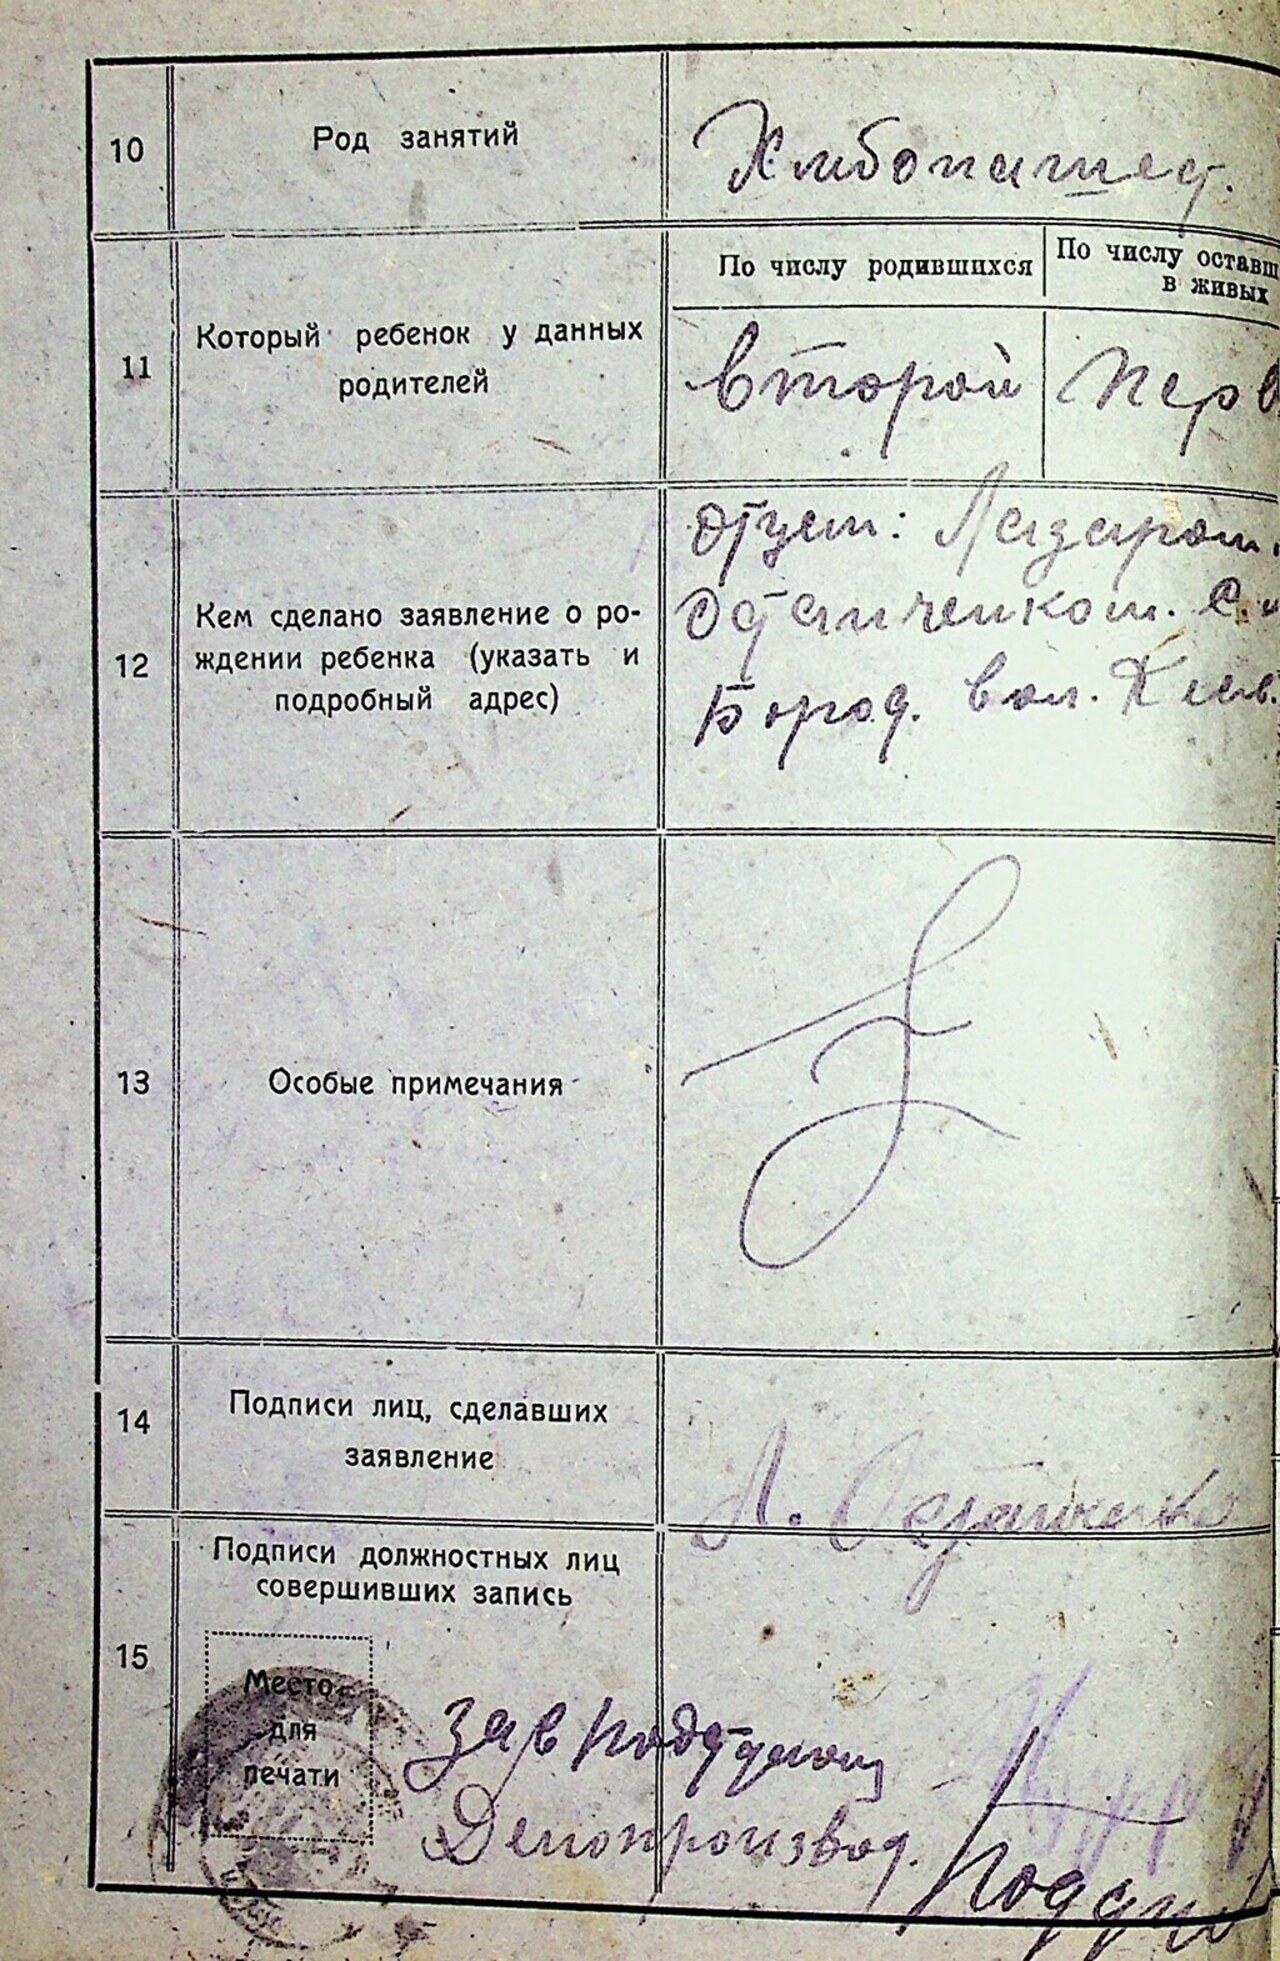 10
Род занятий
Хлибопашед.
11
Который ребенок у данных
родителей
По числу родившихся
По числу оставш
в живых
второй
перв
12
Кем сделано заявление о ро-
ждении ребенка (указать и
подробный адрес)
Отцем: Лазаром.
Остапченком. с.
Бород. вол. Киев.
13
Особые примечания
14
Подписи лиц, сделавших
заявление
Л. Остапченко
15
Подписи должностных лиц
совершивших запись
Место
для
печати
Зав подотделом
Делопроизвод.